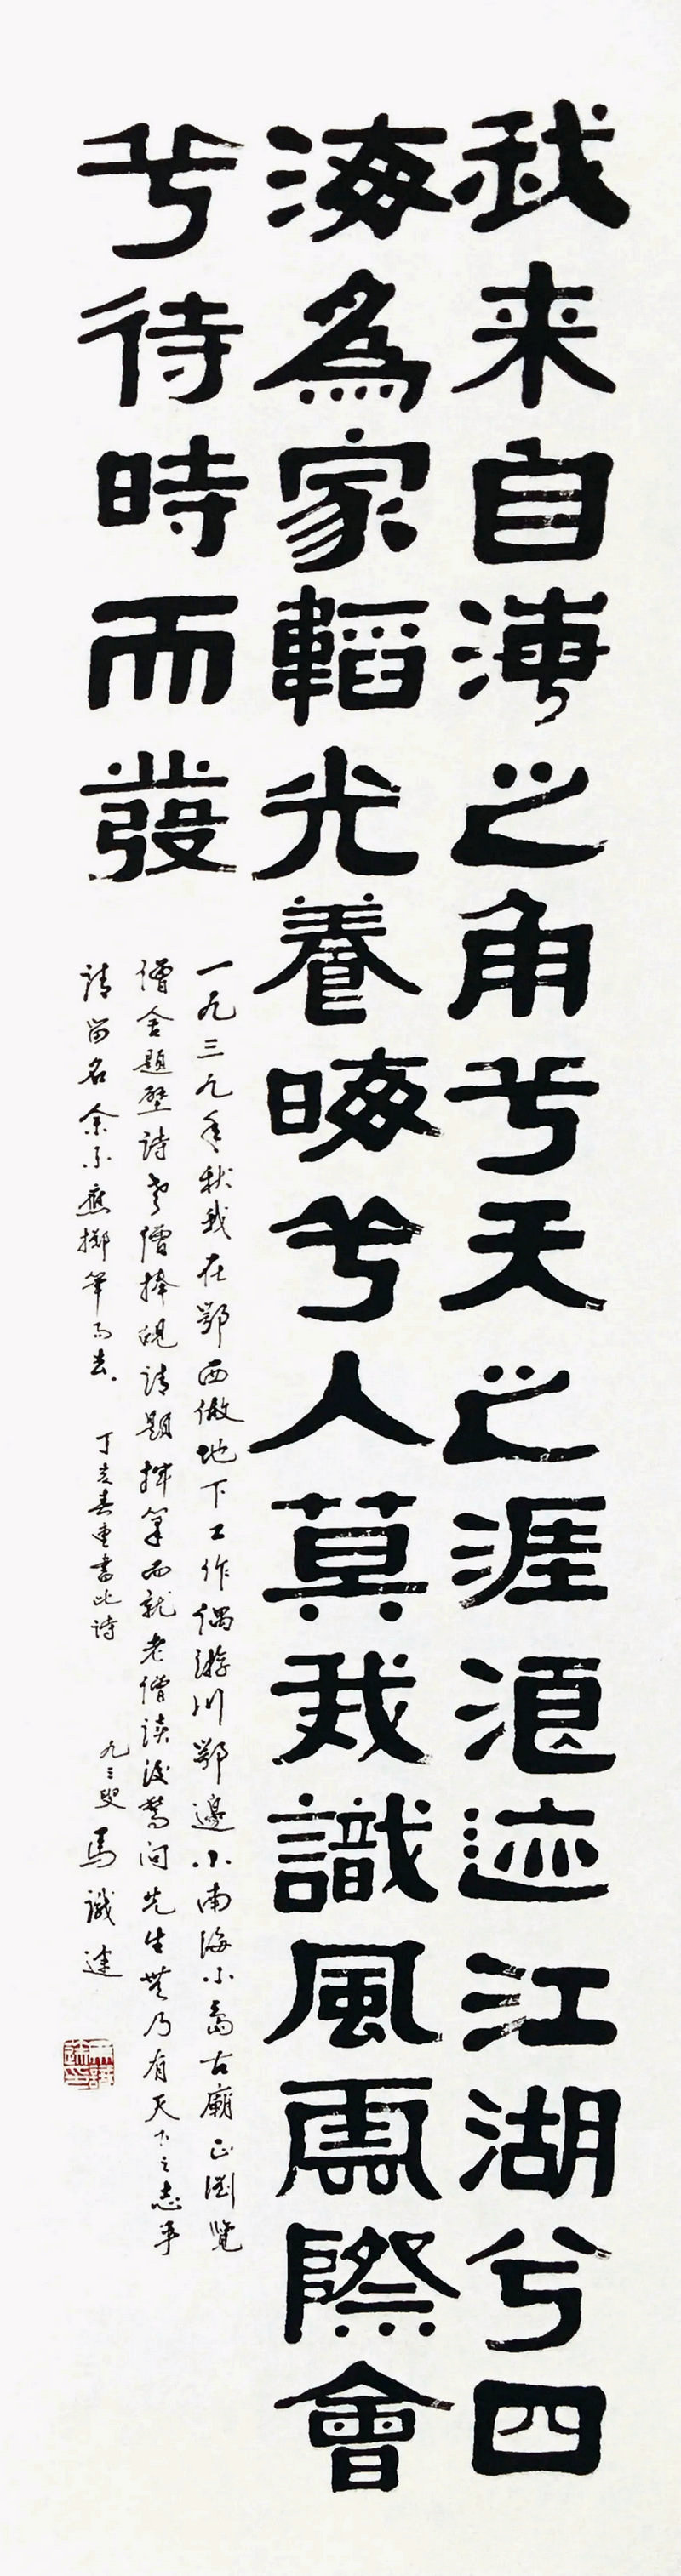 我来自海之角兮天之涯浪迹江湖兮四
海為家韜光養晦兮人莫我識風雲際會
兮待時而發
一九三九年秋我在鄂西做地下工作偶游川鄂邊小南海小島古廟正瀏覽
僧舍題壁詩老僧捧硯請題拝筆而就老僧读後驚问先生莫乃有天下之志乎
請留名余不應擲筆而去
丁亥春重書此詩
九三叟馬識途